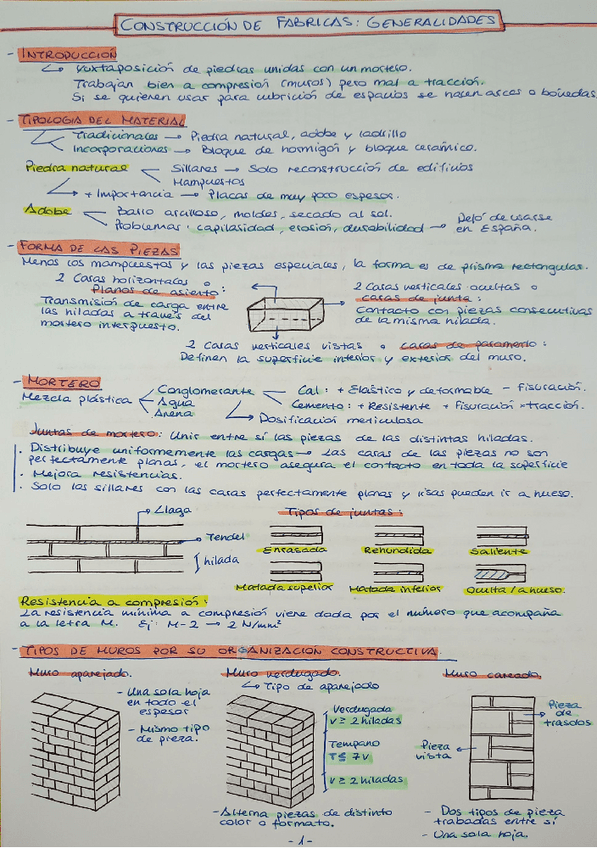 CONSTRUCCIÓN DE FÁBRICAS: GENERALIDADES
- INTRODUCCIÓN
↳ Yuxtaposición de piedras unidas con un mortero.
Trabajan bien a compresión (muros) pero mal a tracción.
Si se quieren usar para cubrición de espacios se hacen arcos o bóvedas.
- TIPOLOGÍA DEL MATERIAL
Tradicionales → Piedra natural, adobe y ladrillo
Incorporaciones → Bloque de hormigón y bloque cerámico.
Piedra natural Sillares → Solo reconstrucción de edificios
Mampuestos
+ Importancia → Placas de muy poco espesor.
Adobe Barro arcilloso, moldes, secado al sol.
Problemas: capilaridad, erosión, durabilidad → Dejó de usarse
en España.
- FORMA DE LAS PIEZAS
Menos los mampuestos y las piezas especiales, la forma es de prisma rectangular.
2 Caras horizontales o
Planos de asiento:
Transmisión de carga entre
las hiladas a través del
mortero interpuesto.
2 Caras verticales ocultas o
caras de junta:
Contacto con piezas consecutivas
de la misma hilada.
2 Caras verticales vistas o caras de paramento:
Definen la superficie interior y exterior del muro.
- MORTERO
Mezcla plástica Conglomerante Cal: + Elástico y deformable - Fisuración.
Agua Cemento: + Resistente + Fisuración × tracción.
Arena Dosificación meticulosa
Juntas de mortero: Unir entre sí las piezas de las distintas hiladas.
· Distribuye uniformemente las cargas → Las caras de las piezas no son
perfectamente planas, el mortero asegura el contacto en toda la superficie
· Mejora resistencias.
· Solo los sillares con las caras perfectamente planas y lisas pueden ir a hueso.
Llaga
Tendel
hilada
Tipos de juntas:
Enrasada Rehundida Saliente
Matada superior Matada inferior Oculta / a hueso.
Resistencia a compresión:
La resistencia mínima a compresión viene dada por el número que acompaña
a la letra M. Ej: M-2 → 2 N/mm²
- TIPOS DE MUROS POR SU ORGANIZACIÓN CONSTRUCTIVA.
Muro aparejado.
- Una sola hoja
en todo el
espesor
- Mismo tipo
de pieza.
Muro verdugado.
↳ Tipo de aparejado
Verdugada
V ≥ 2 hiladas
Témpano
T ≤ 7V
V ≥ 2 hiladas
- Alterna piezas de distinto
color o formato.
Muro careado.
Pieza
de
trasdós
Pieza
vista
- Dos tipos de pieza
trabadas entre sí
- Una sola hoja.
- 1 -